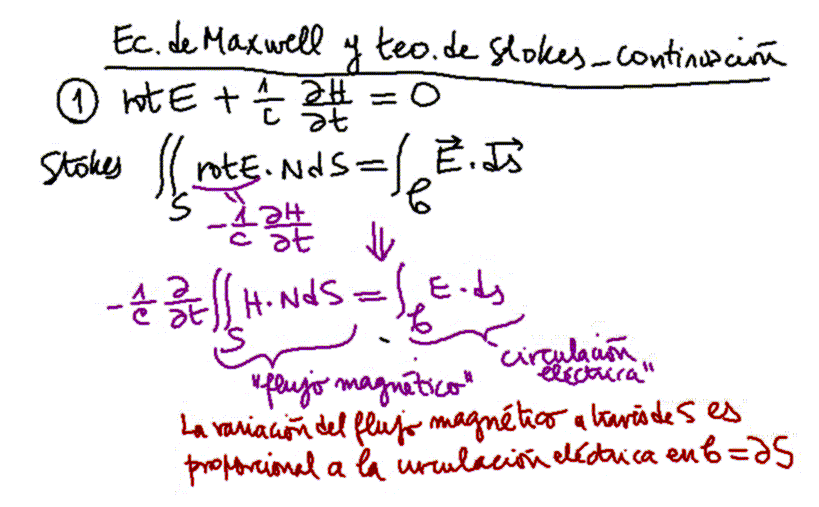 Ec. de Maxwell y teo. de Stokes - continuación
① rot E + 1/c ∂H/∂t = 0
Stokes ∬_S rot E · N dS = ∫_C E⃗ · ds⃗
-1/c ∂H/∂t
⇓
-1/c ∂/∂t ∬_S H · N dS = ∫_C E · ds
"flujo magnético" "circulación
eléctrica"
La variación del flujo magnético a través de S es
proporcional a la circulación eléctrica en C = ∂S